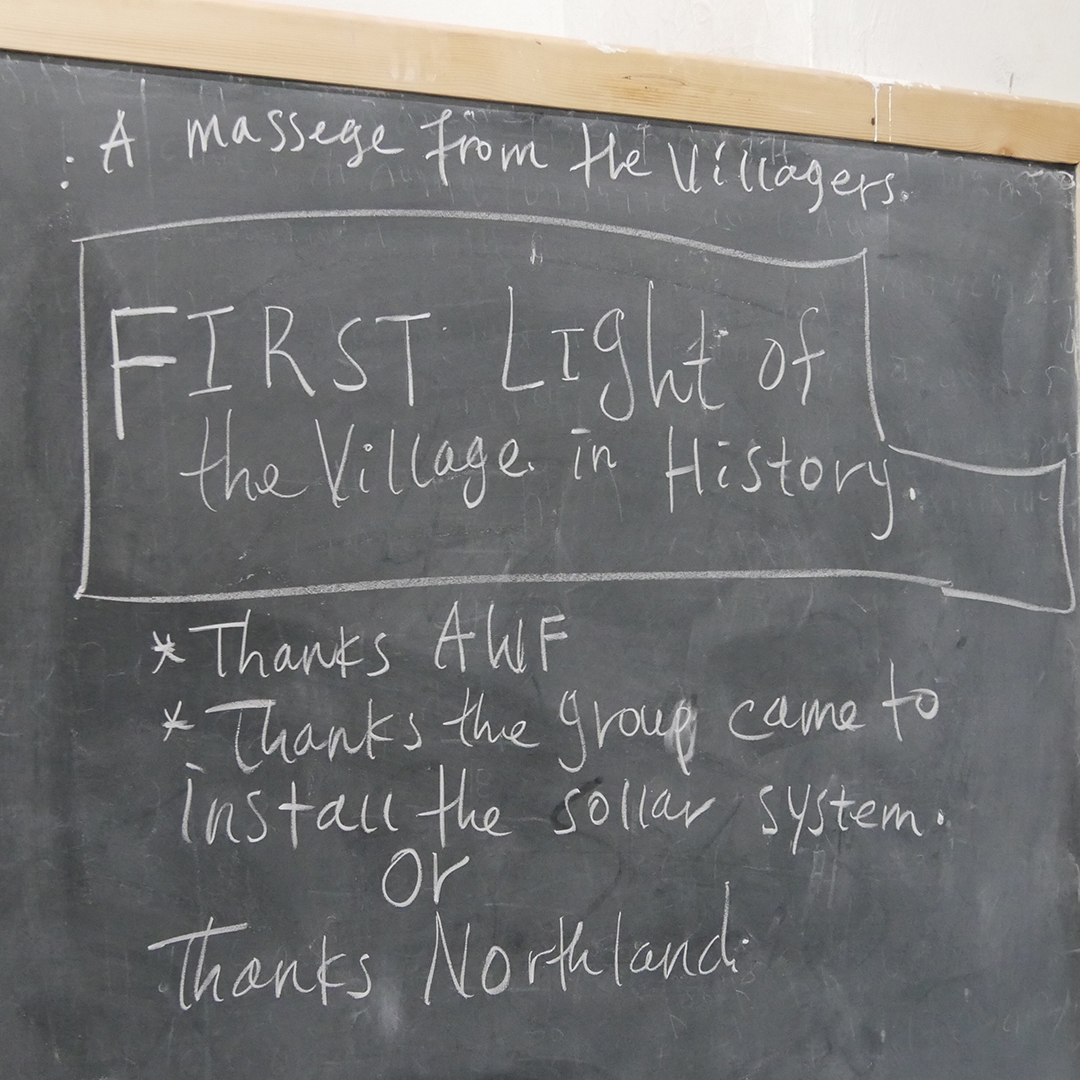 : A massege from the Villagers.
FIRST LIght of
the Village in History.
* Thanks AWF
* Thanks the group came to
install the sollar system.
Or
Thanks Northland.